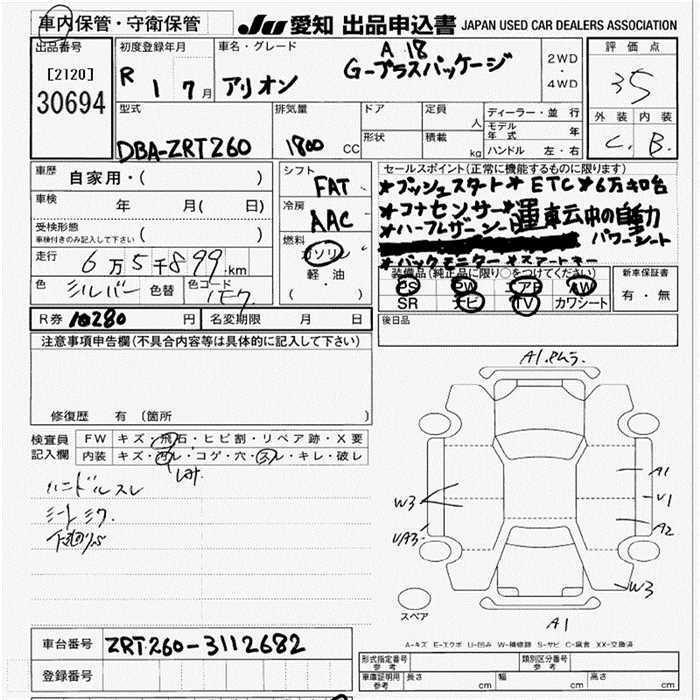 車内保管・守衛保管
JU 愛知 出品申込書 JAPAN USED CAR DEALERS ASSOCIATION
出品番号
[2120]
30694
初度登録年月
R 1 7月
車名・グレード
アリオン
A 18
G-プラスパッケージ
2WD
・
4WD
評価点
35
外装 内装
C. B.
型式
DBA-ZRT260
排気量
1800 CC
ドア
形状
定員 人
積載 kg
ディーラー・並行
モデル年式 年
ハンドル 左・右
車歴
自家用・( )
車検 年 月( 日)
受検形態
車検付きのみ記入して下さい ( )
走行 6万5千899km
色 シルバー 色替 色コード 1F7
シフト
FAT
冷房
AAC
燃料
ガソリン
軽・油
( )
セールスポイント(正常に機能するものに限ります)
*プッシュスタート* ETC *6万キロ台
*コナセンサー*運転席の自動
*ハーフレザーシート パワーシート
*バックモニター *スマートキー
装備品(純正品に限り○をつけてください)
PS PW エアB AW
SR ナビ TV カワシート
新車保証書
有・無
R券 10280 円 名変期限 月 日
後日品
注意事項申告欄(不具合内容等は具体的に記入して下さい)
修復歴 有(箇所
検査員記入欄
FW キズ・飛石・ヒビ割・リペア跡・X要
内装 キズ・汚レ・コゲ・穴・スレ・キレ・破レ
ハンドルスレ
シートシワ
下廻りサビ
A1.ムラ
A1
V1
A2
W3
VA3
W3
A1
スペア
A-キズ E-エクボ U-凹み W-補修跡 S-サビ C-腐食 XX-交換済
車台番号 ZRT260-3112682
登録番号
形式指定番号 参考
類別区分番号 参考
車庫証明用 参考 長さ cm 幅 cm 高さ cm